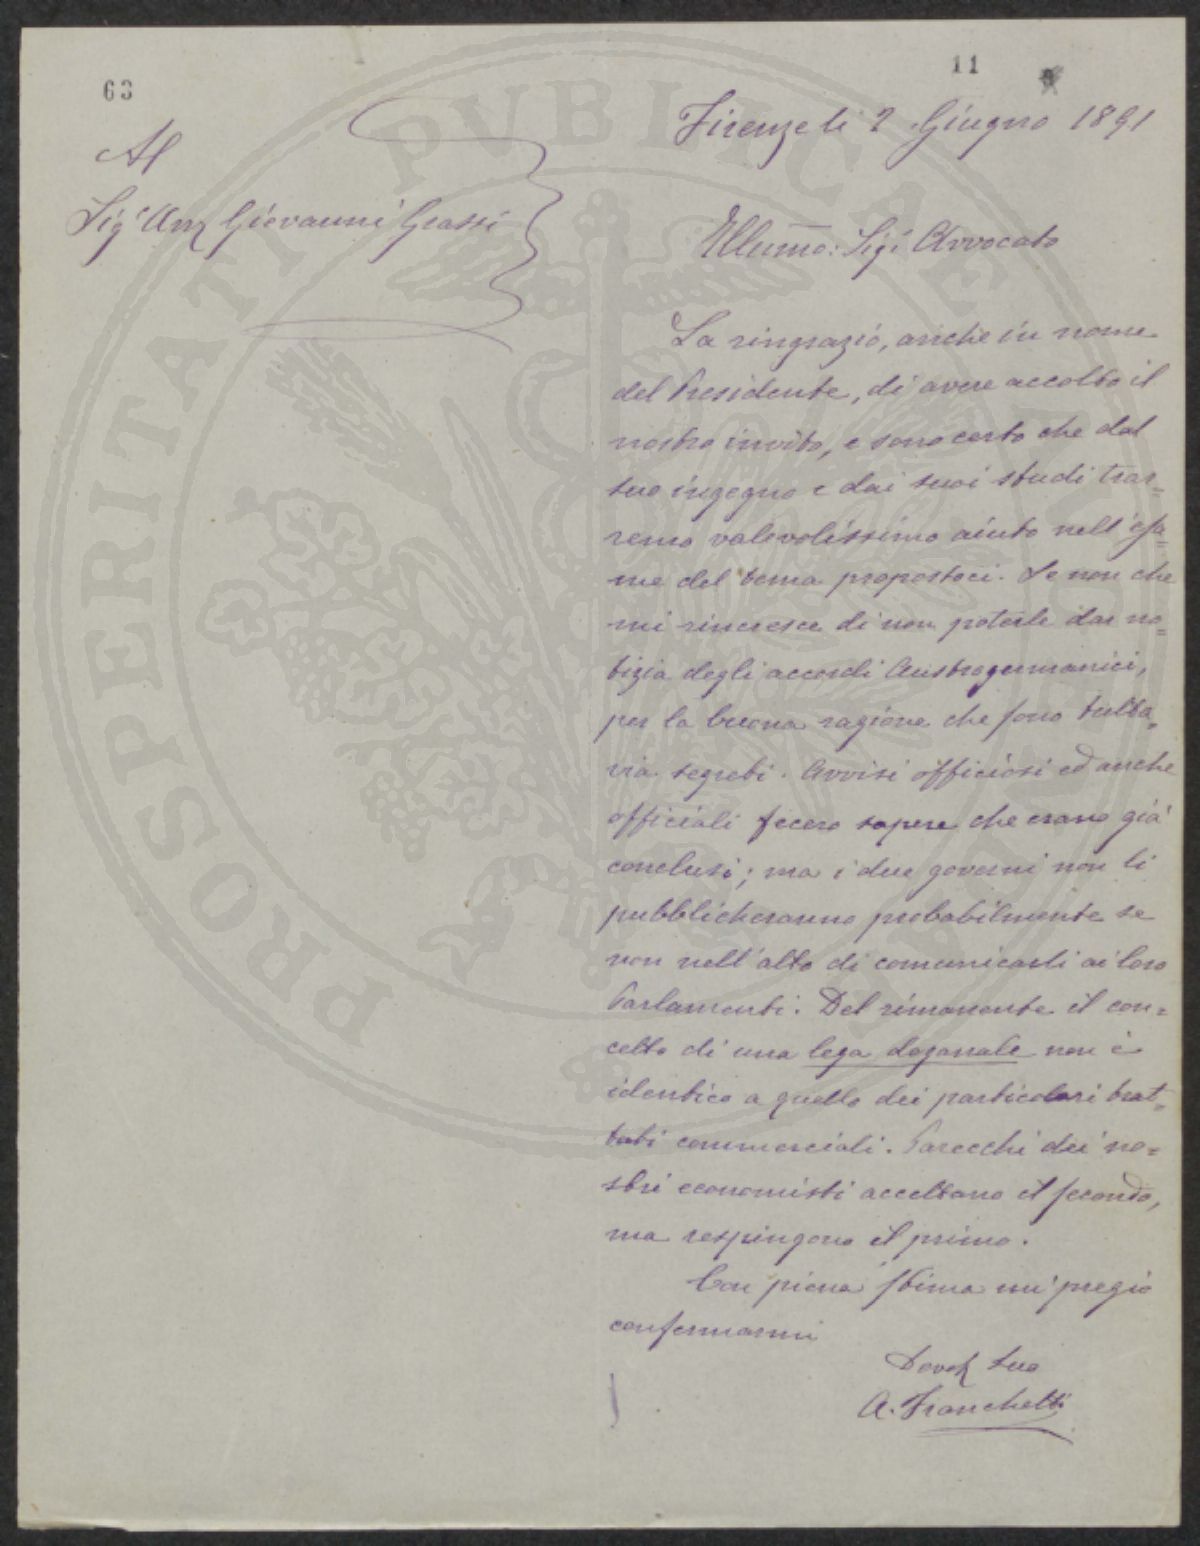 63
11
Firenze li 2 Giugno 1891
Al
Sigr Avv Giovanni Grassi
Illumo: Sigr Avvocato
La ringrazio, anche in nome
del Presidente, di avere accolto il
nostro invito, e sono certo che dal
suo ingegno e dai suoi studi trar=
remo valevolissimo aiuto nell'esa=
me del tema propostoci. Se non che
mi rincresce di non poterle dar no=
tizia degli accordi Austrogermanici,
per la buona ragione che sono tutta=
via segreti. Avvisi officiosi ed anche
officiali fecero sapere che erano già
conclusi; ma i due governi non li
pubblicheranno probabilmente se
non nell'atto di comunicarli ai loro
Parlamenti. Del rimanente il con=
cetto di una lega doganale non è
identico a quello dei particolari trat=
tati commerciali. Parecchi dei no=
stri economisti accettano il secondo,
ma respingono il primo.
Con piena stima mi pregio
confermarmi
Suo
A. Franchetti
PROSPERITATI PVBLICAE